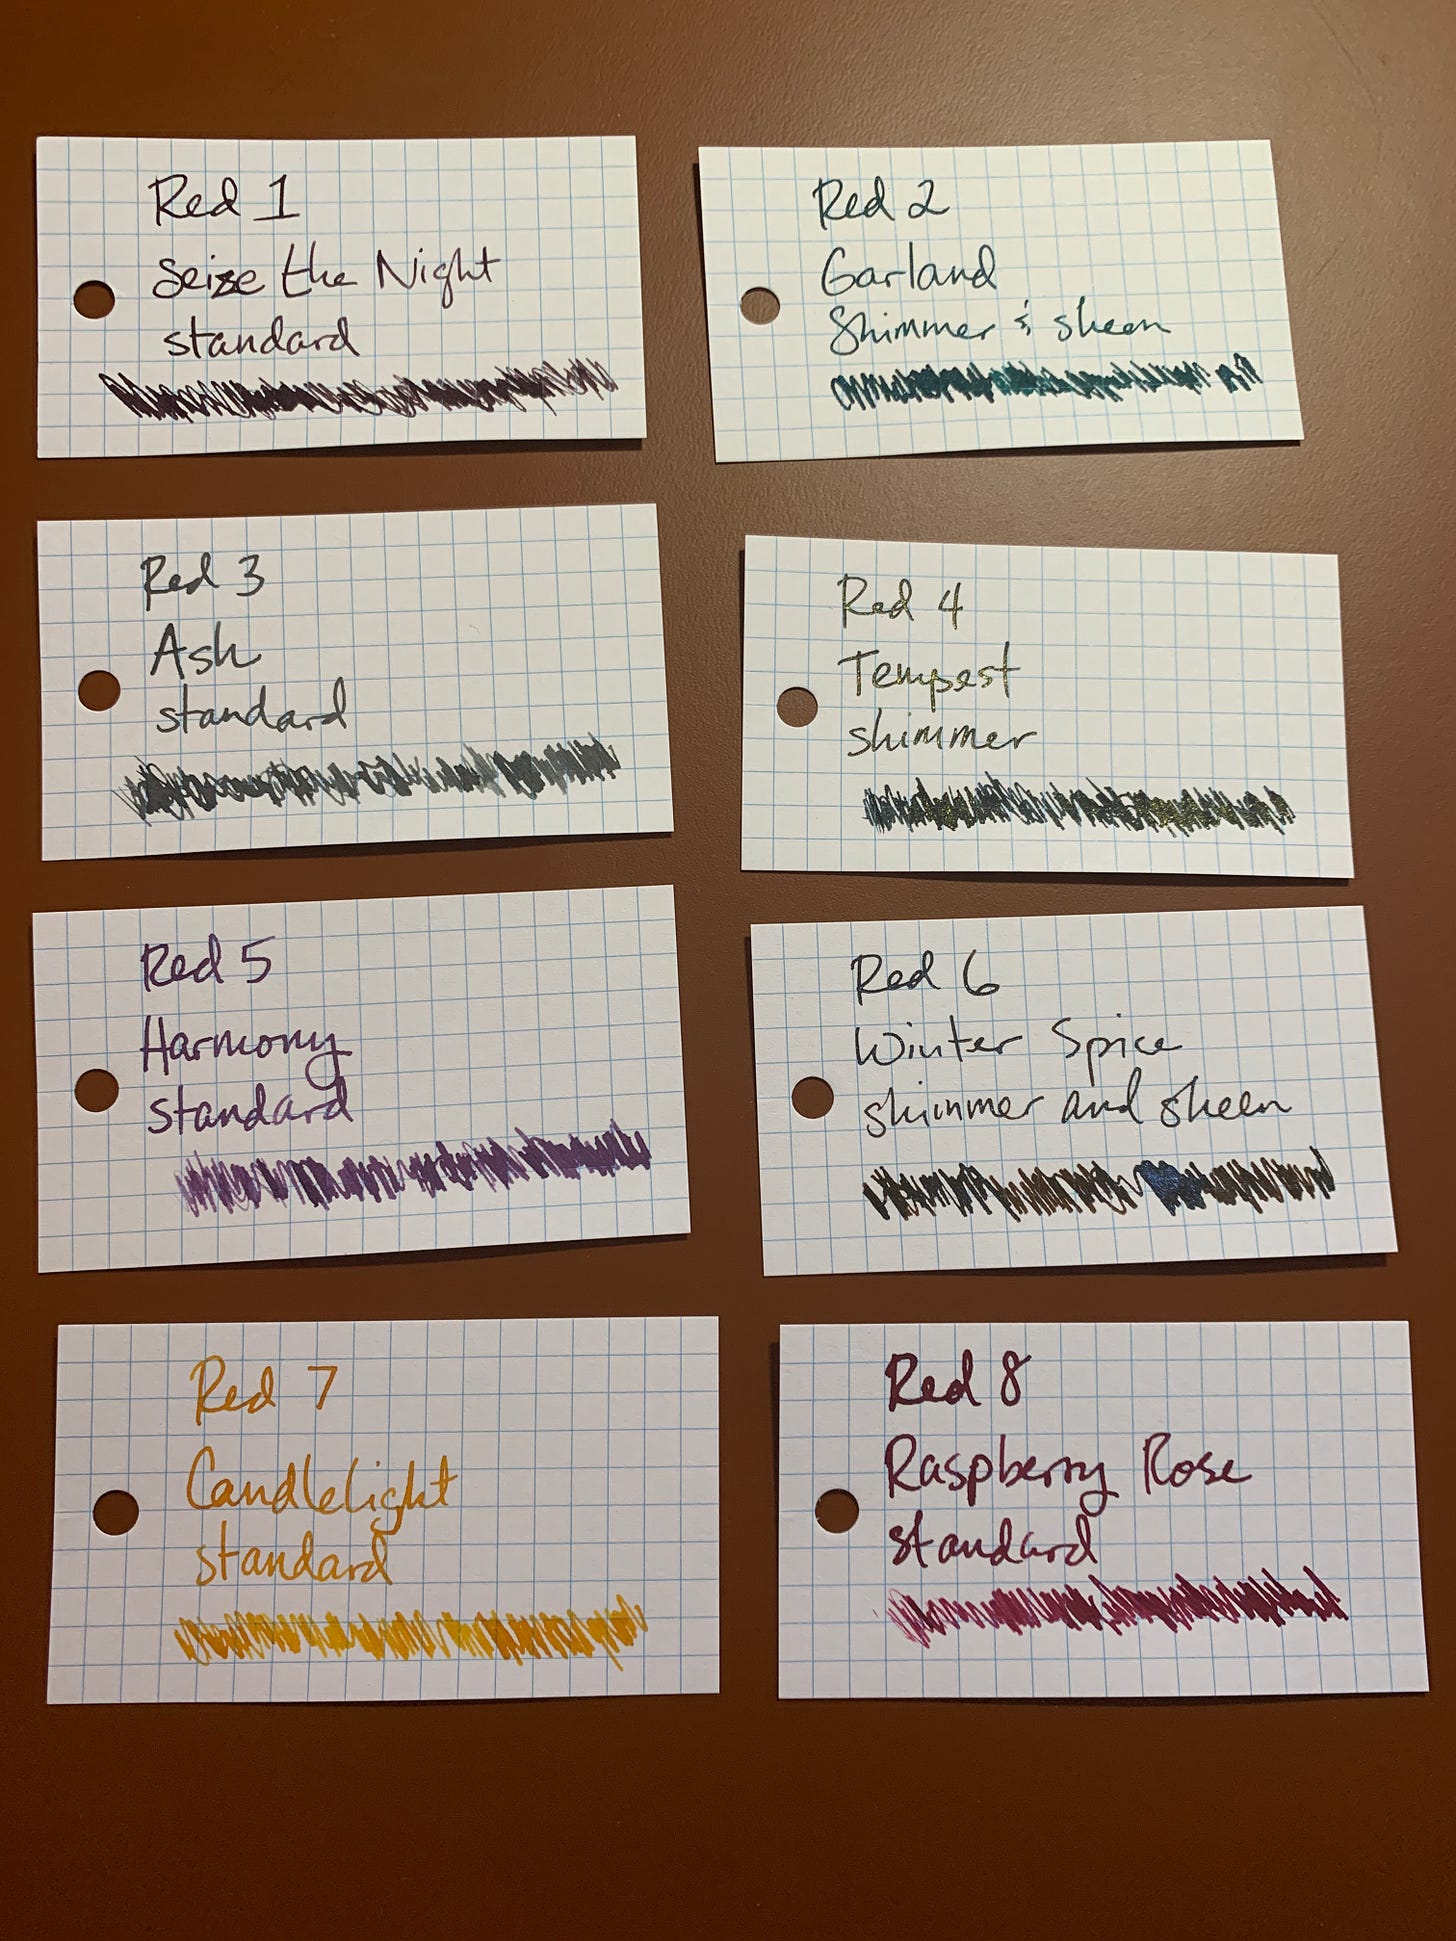 Red 1
Seize the Night
standard
Red 2
Garland
Shimmer & sheen
Red 3
Ash
standard
Red 4
Tempest
shimmer
Red 5
Harmony
standard
Red 6
Winter Spice
shimmer and sheen
Red 7
Candlelight
standard
Red 8
Raspberry Rose
standard